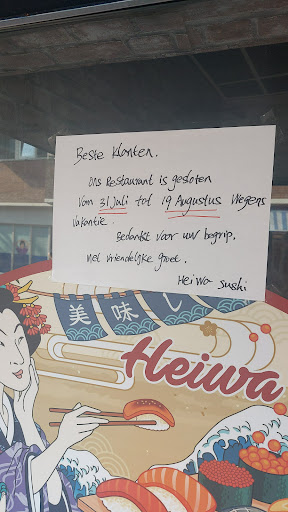 Beste Klanten.
Ons Restaurant is gesloten
Van 31 Juli tot 19 Augustus Wegens
Vakantie.
Bedankt voor uw begrip.
Met vriendelijke groet.
Heiwa Sushi
美味し
Heiwa